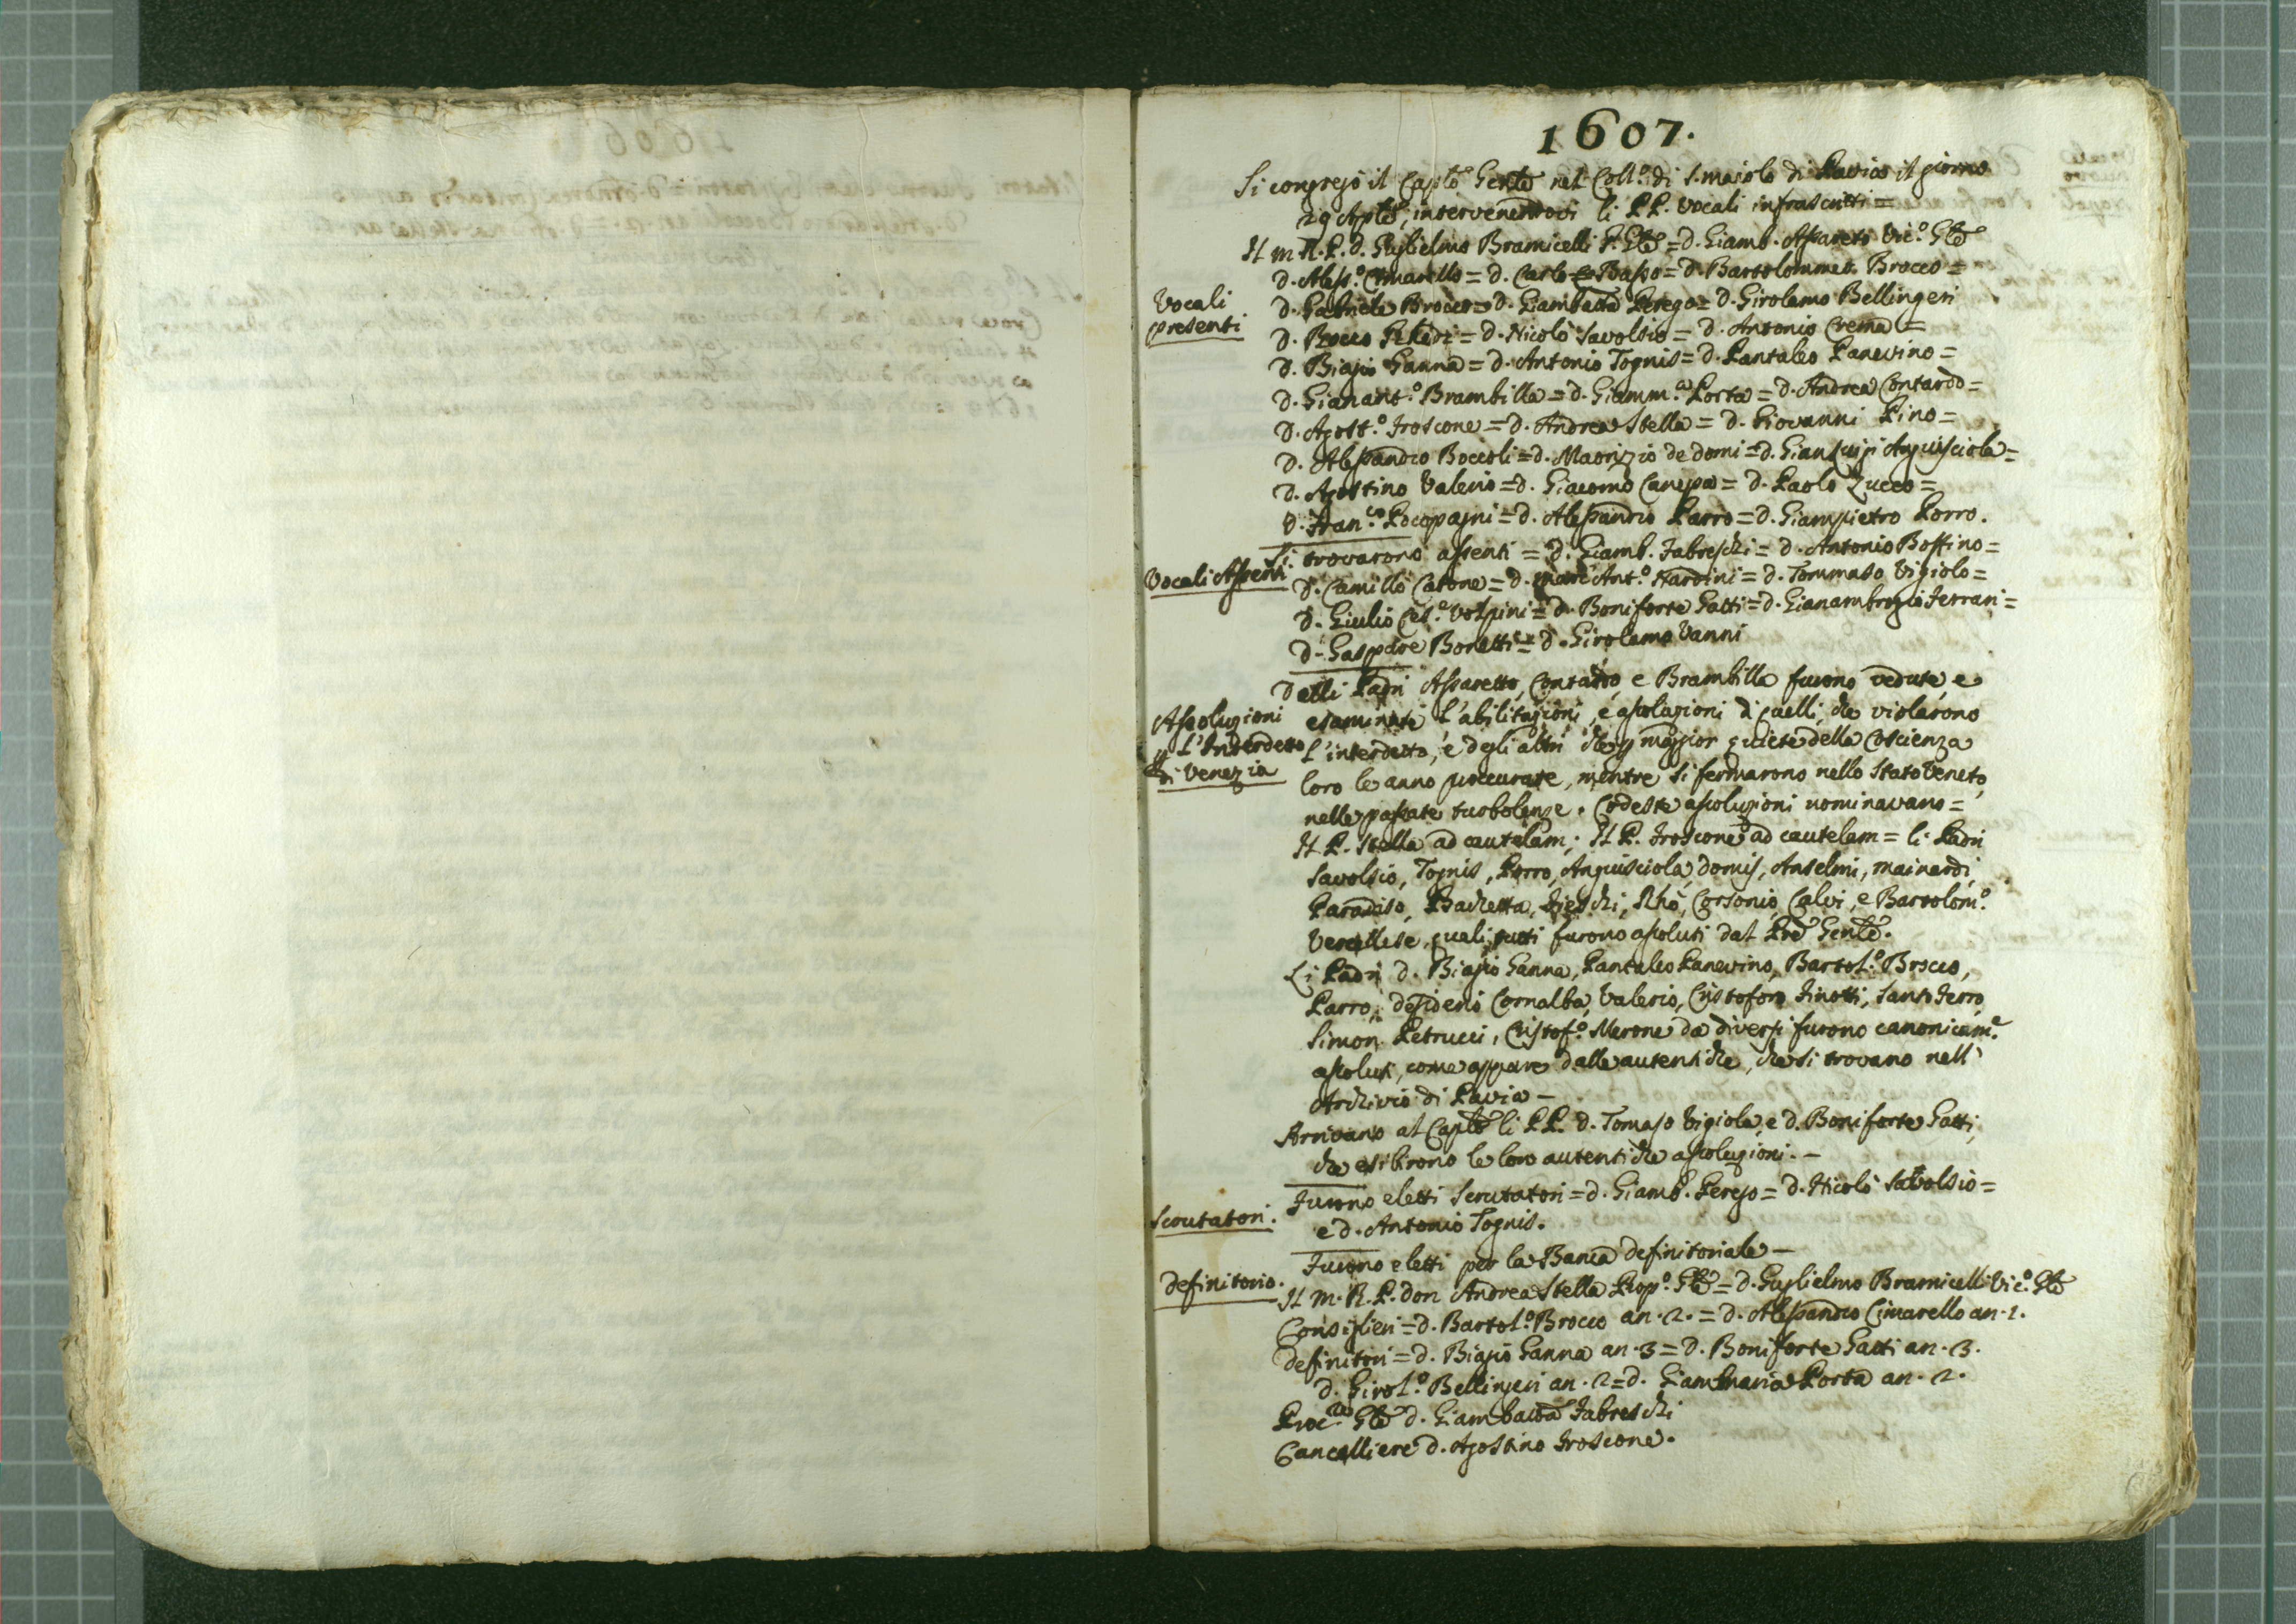 1607.
Si congregò il Caplo Gentle nel Coll.o di S. Maiolo di Pavia il giorno
29 Aple, intervenendovi li PP. Vocali infrascritti =
Il M. R. P. d. Guglielmo Bramicelli P. Gle = d. Giamb. Assareto Vic.o Gle
d. Aless.o Cimarello = d. Carlo Basso = d. Bartolommeo Brocco =
Vocali
presenti
d. Gabriele Brocco = d. Giambatta Perego = d. Girolamo Bellingeri
d. Rocco = d. Nicolò Savolsio = d. Antonio Crema =
d. Biagio Ganna = d. Antonio Tognis = d. Pantaleo Panevino =
d. Gianant.o Brambilla = d. Giamm.a Porta = d. Andrea Contardo =
d. Agost.o Froscone = d. Andrea Stella = d. Giovanni Pino =
d. Alessandro Boccoli = d. Maorizio de domi = d. Gianluigi Anguisciola =
d. Agostino Valerio = d. Giacomo Canepa = d. Paolo Zucco =
d. Fran.co Pocopagni = d. Alessandro Parro = d. Giampietro Porro.
Vocali Assenti.
Si trovarono assenti = d. Giamb. Fabreschi = d. Antonio Boffino =
d. Camillo Catone = d. Marc Ant.o Nardini = d. Tommaso Vigiolo =
d. Giulio Ces.e Volpini = d. Boniforte Gatti = d. Gianambrogio Ferrari =
d. Gaspare Boretti = d. Girolamo Vanni
Assoluzioni
p l'Interdetto
di Venezia
Dalli Padri Assaretto, Contardo, e Brambilla furono vedute, e
esaminate l'abilitazioni, e assoluzioni di quelli, che violarono
l'interdetto, e degli altri che p maggior quiete della Coscienza
loro le anno proccurate, mentre si fermarono nello Stato Veneto
nelle passate turbolenze. Codeste assoluzioni nominavano =
Il P. Stella ad cautelam; Il P. Froscone ad cautelam = li Padri
Savolsio, Tognis, Porro, Anguisciola, domis, Anselmi, Mainardi,
Paradiso, Bachetta, Rhò, Corsonio, Calvi, e Bartolom.o
Vercellese, quali tutti furono assoluti dal Pre Gentle.
Li Padri d. Biagio Ganna, Pantaleo Panevino, Bartol.o Brocco,
Parro, desiderio Cornalba, Valerio, Cristoforo Finotti, Santo Ferro,
Simon Petrucci, Cristof.o Merone da diversi furono canonicam.e
assoluti, come appare dalle autentiche, che si trovano nell'
Archivio di Pavia –
Arrivano al Caplo li PP. d. Tomaso Vigiola, e d. Boniforte Gatti,
che esibirono le loro autentiche assoluzioni. –
Scrutatori.
Furono eletti Scrutatori = d. Giamb. Perego = d. Nicolò Savolsio =
e d. Antonio Tognis.
Furono eletti per la Banca definitoriale –
definitorio.
Il M. R. P. don Andrea Stella Prop.o Gle = d. Guglielmo Bramicelli Vic.o Gle
Consiglieri = d. Bartol.o Brocco an. 2. = d. Alessandro Cimarello an. 1.
definitori = d. Biagio Ganna an. 3 = d. Boniforte Gatti an. 3.
d. Girol.o Bellingeri an. 2 = d. Giammaria Porta an. 2.
Proc.re Gle d. Giambatta Fabreschi
Cancelliere d. Agostino Froscone.